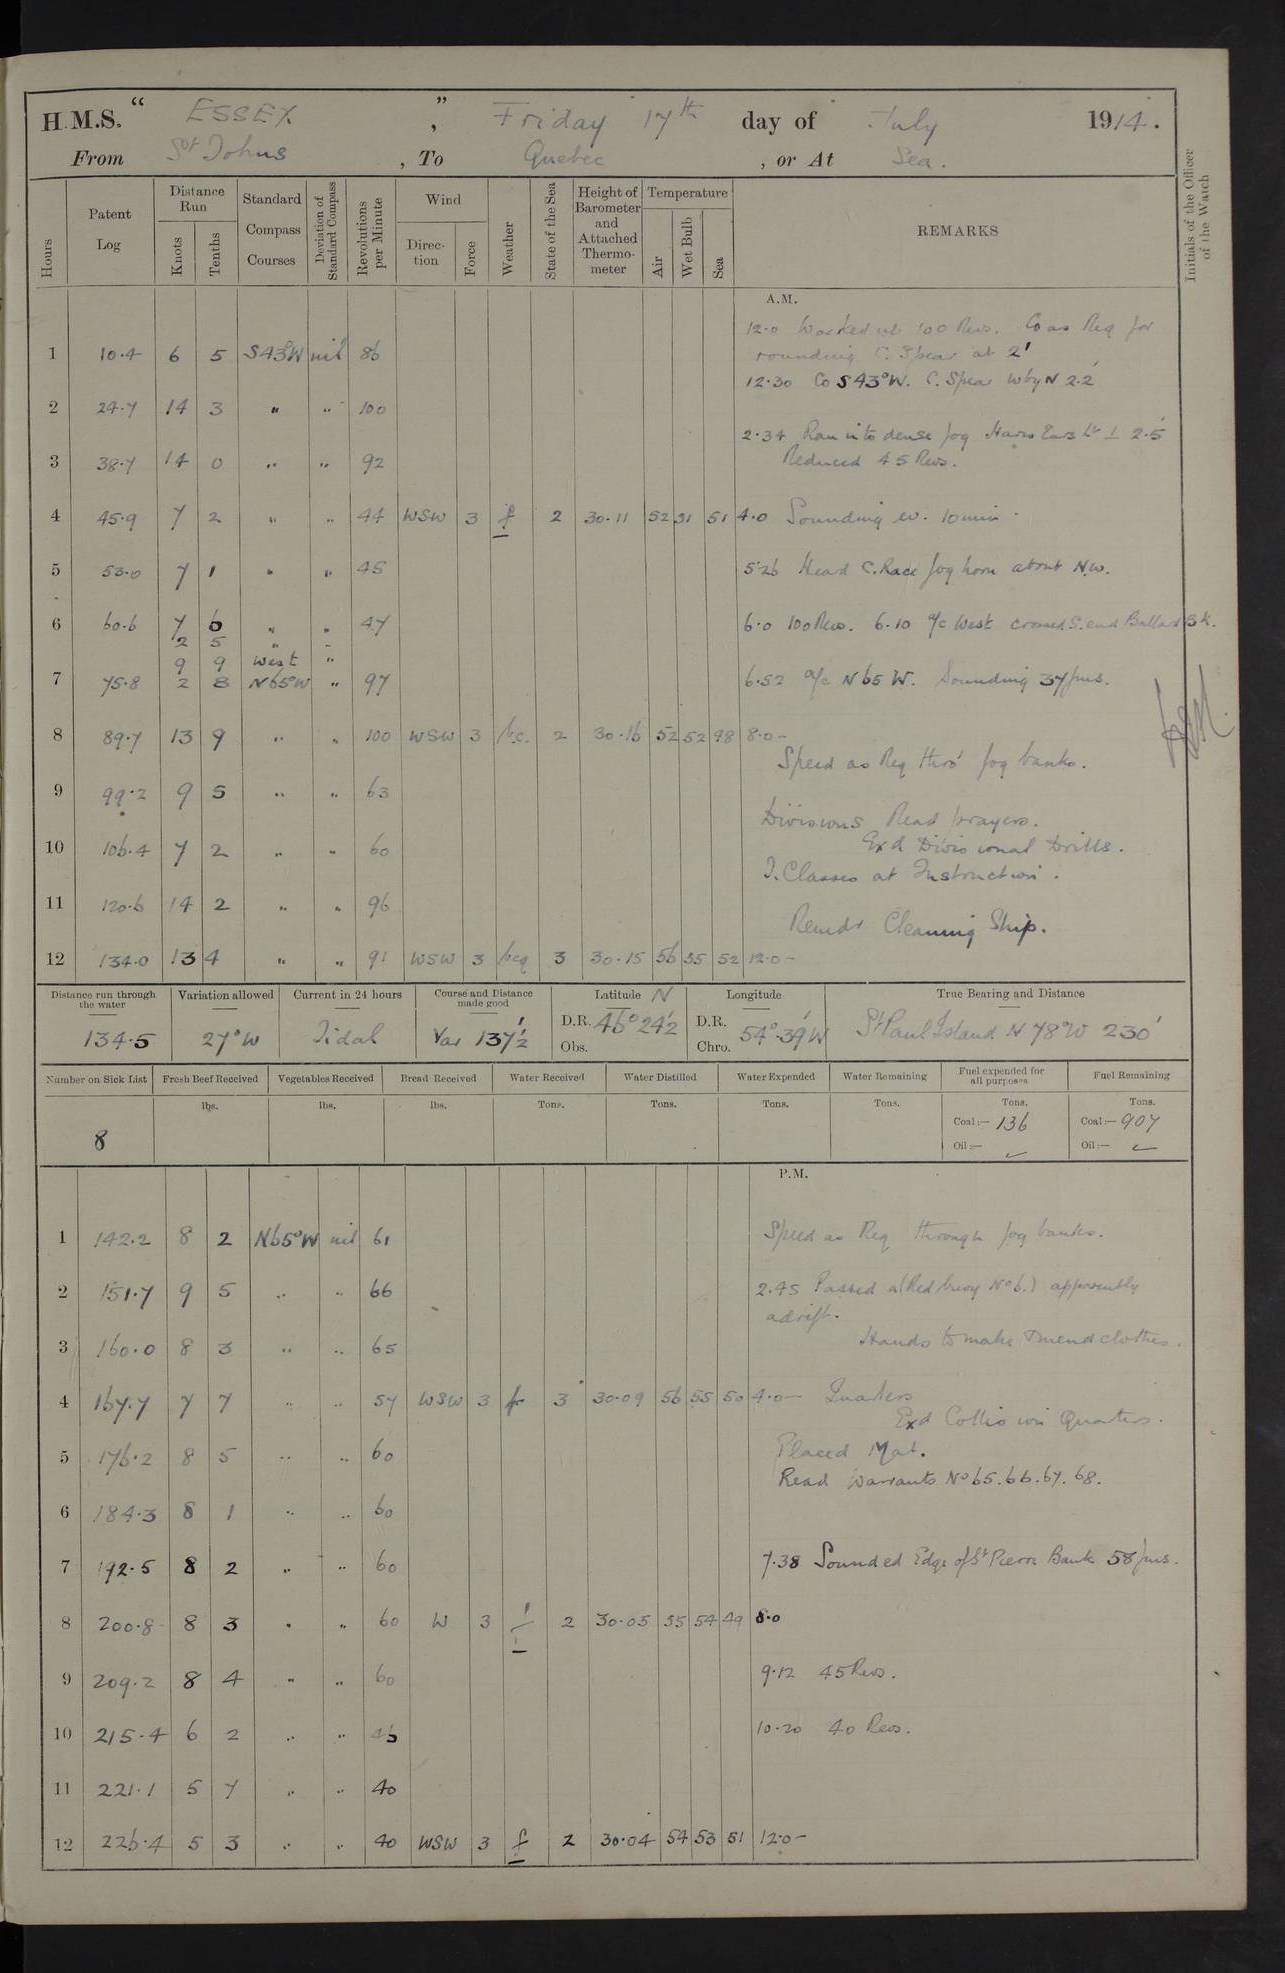 H.M.S. “ ESSEX ” , Friday 17th day of July 1914.
From St Johns , To Quebec , or At Sea.
Hours Patent Log Distance Run Knots Tenths Standard Compass Courses Deviation of Standard Compass Revolutions per Minute Wind Direction Force Weather State of the Sea Height of Barometer and Attached Thermometer Temperature Air Wet Bulb Sea REMARKS Initials of the Officer of the Watch
A.M.
12.0 Worked up 100 Revs. Co as Req for
1 10.4 6 5 S43°W nil 86 rounding C. Spear at 2'
12.30 Co S43°W. C. Spear WbyN 2.2'
2 24.7 14 3 " " 100
2.34 Ran into dense fog 2.5'
3 38.7 14 0 " " 92 Reduced 45 Revs.
4 45.9 7 2 " " 44 WSW 3 f 2 30.11 52 51 51 4.0 Sounding ev. 10 min.
5 53.0 7 1 " " 45 5.26 Heard C. Race fog horn about N.W.
6 60.6 7 6 " " 47 6.0 100 Revs. 6.10 a/c West crossed S. end Ballard Bk.
2 5 " "
9 9 West "
7 75.8 2 8 N65°W " 97 6.52 a/c N65W. Sounding 37 fms.
8 89.7 13 9 " " 100 WSW 3 b.c. 2 30.16 52 52 48 8.0-
Speed as Req thro' fog banks.
9 99.2 9 5 " " 63
Divisions Read prayers.
10 106.4 7 2 " " 60 Exd Divisional Drills.
T. Classes at Instruction.
11 120.6 14 2 " " 96
Remdr Cleaning Ship.
12 134.0 13 4 " " 91 WSW 3 3 30.15 56 55 52 12.0-
Distance run through the water Variation allowed Current in 24 hours Course and Distance made good Latitude N Longitude True Bearing and Distance
134.5 27°W Tidal Var 137½' D.R. 46° 24½' D.R. 54°.39'W St Paul Island N 78°W 230'
Obs. Chro.
Number on Sick List Fresh Beef Received Vegetables Received Bread Received Water Received Water Distilled Water Expended Water Remaining Fuel expended for all purposes Fuel Remaining
lbs. lbs. lbs. Tons. Tons. Tons. Tons. Tons. Tons.
8 Coal:— 136 Coal:— 907
Oil:— Oil:—
P.M.
1 142.2 8 2 N65°W nil 61 Speed as Req through fog banks.
2 151.7 9 5 " " 66 2.45 Passed a (Red buoy No 6.) apparently
adrift.
3 160.0 8 3 " " 65 Hands to make & mend clothes.
4 167.7 7 7 " " 57 WSW 3 3 30.09 56 55 50 4.0- Quarters
Exd Collision Quarters.
5 176.2 8 5 " " 60 Placed Mat.
Read Warrants No 65.66.67.68.
6 184.3 8 1 " " 60
7 192.5 8 2 " " 60 7.38 Sounded Edge of St Pierre Bank 58 fms.
8 200.8 8 3 " " 60 W 3 2 30.05 55 54 49 8.0
9 209.2 8 4 " " 60 9.12 45 Revs.
10 215.4 6 2 " " 45 10.20 40 Revs.
11 221.1 5 7 " " 40
12 226.4 5 3 " " 40 WSW 3 f 2 30.04 54 53 51 12.0-